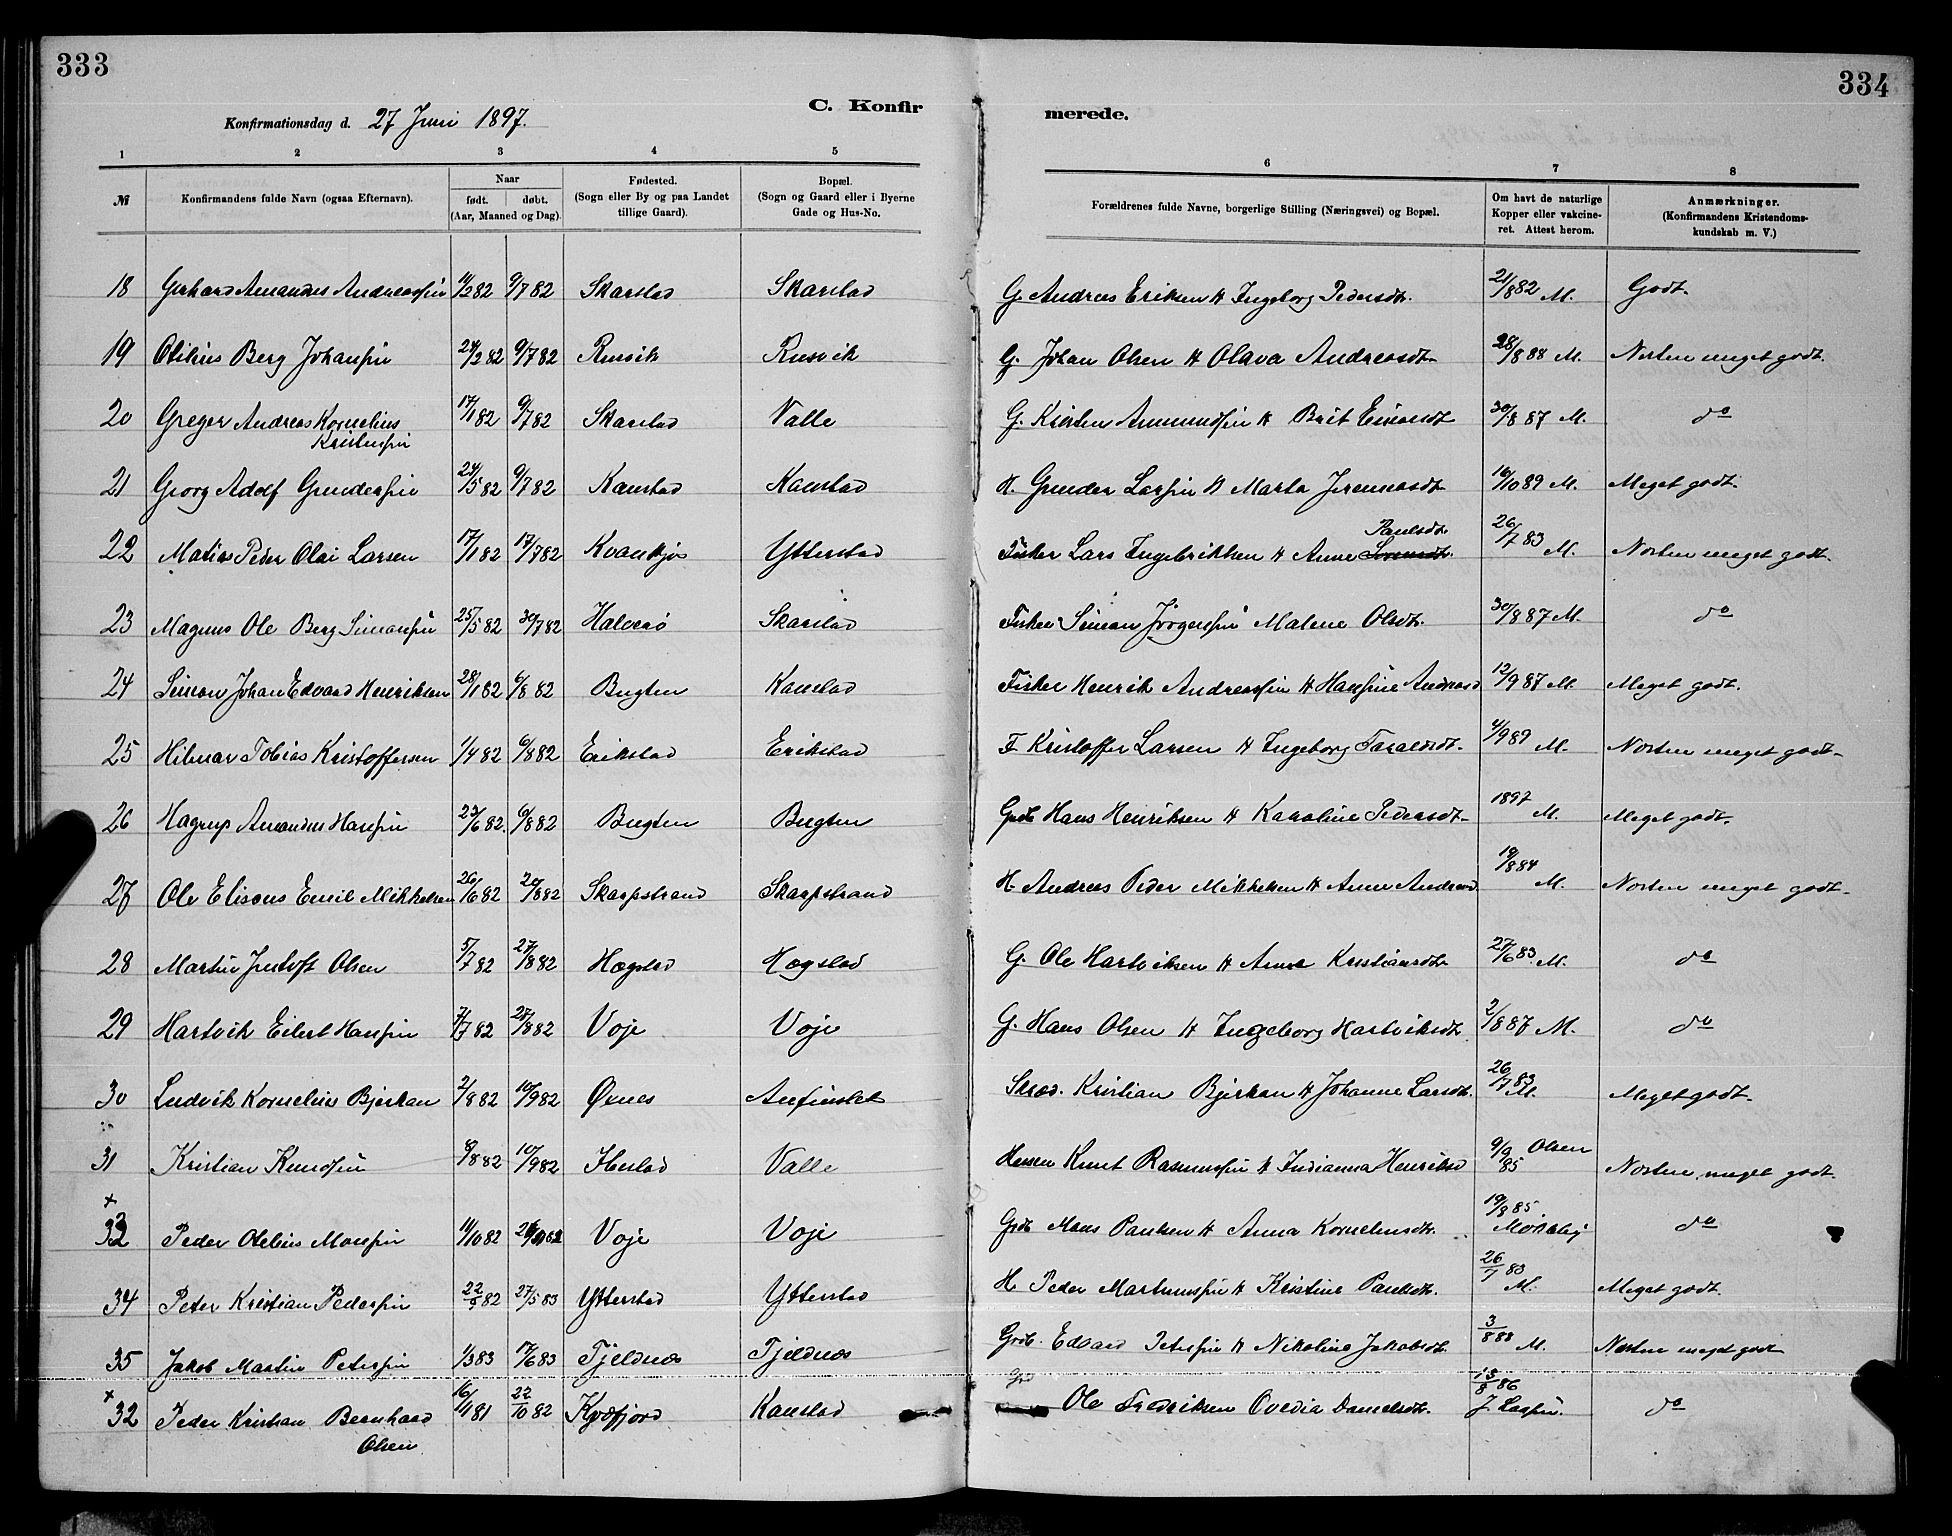 333
334
C. Konfirmerede.
Konfirmationsdag d. 27 Juni 1897.
1 2 3 4 5 6 7 8
№ Konfirmandens fulde Navn (ogsaa Efternavn). Naar født. døbt. (Aar, Maaned og Dag). Fødested. (Sogn eller By og paa Landet tillige Gaard). Bopæl. (Sogn og Gaard eller i Byerne Gade og Hus-No. Forældrenes fulde Navne, borgerlige Stilling (Næringsvei) og Bopæl. Om havt de naturlige Kopper eller vakcineret. Attest herom. Anmærkninger. (Konfirmandens Kristendomskundskab m. V.)
18 Gerhard Amandus Andreassen 11/2 82 9/7 82 Skarstad Skarstad G. Andreas Eriksen H Ingeborg Pedersdt. 21/8 82 M. Godt.
19 Otilius Berg Johansen 24/2 82 9/7 82 Rusvik Rusvik G. Johan Olsen H Olava Andreasdt. 28/8 88 M. Næsten meget godt.
20 Greger Andreas Kornelius Kristensen 17/1 82 9/7 82 Skarstad Valle G. Kristen Ammundsen H Brit Einarsdt 30/8 87 M. do
21 Georg Adolf Gundersen 24/5 82 9/7 82 Kanstad Kanstad H. Gunder Larsen H Marta Jeremiasdt 16/10 89 M. Meget godt.
22 Matias Peder Olai Larsen 17/1 82 17/7 82 Ytterstad Fisker Lars Ingebriktsen H Anne Paulsdt. 26/7 83 M. Næsten meget godt.
23 Magnus Ole Berg Simonsen 25/5 82 30/7 82 Halvarø Skarstad Fisker Simon Jørgensen Malene Olsdt. 30/8 87 M. do
24 Simon Johan Edvard Henriksen 28/1 82 6/8 82 Bugten Kanstad Fisker Henrik Andreassen H Hansine Andreasd 12/9 87 M. Meget godt.
25 Hilmar Tobias Kristoffersen 1/4 82 6/8 82 Erikstad Erikstad F. Kristoffer Larsen H Ingeborg Taraldsdt. 4/9 89 M. Næsten meget godt.
26 Hagrup Amandus Hansen 23/6 82. 6/8 82 Bugten Bugten Grdb Hans Henriksen H Karoline Pedersdt. 1897 M. Meget godt.
27 Ole Eliseus Emil Mikkelsen 26/6 82 20/8 82 Skarpstrand Skarpstrand H. Andreas Peder Mikkelsen H Anne Andreasd. 19/8 84 M. Næsten meget godt.
28 Martin Justoft Olsen 5/7 82 27/8 82 Hægstad Hægstad G. Ole Hartviksen H Anne Kristiansdt. 27/6 83. M. do
29 Hartvik Eilert Hansen 7/7 82 27/8 82 Voje Voje G. Hans Olsen H Ingeborg Hartviksdt. 2/8 87 M. do
30 Ludvik Kornelius Bjerkan 2/8 82 10/9 82 Øvnes Anfinslet Skræd. Kristian Bjerkan H Johanne Larsdt. 26/7 83 M. Meget godt.
31 Kristian Knudsen 8/8 82 10/9 82 Valle Knut Rasmussen H Indianna Henriksd 9/9 85 Olsen Næsten meget godt.
+
33 Peder Otelius Monsen 11/10 82 Voje Voje Grdb Mons Paulsen H Anna Korneliusdt. 19/8 85. do
34 Peter Kristian Pedersen 22/5 82 27/5 83 Ytterstad Ytterstad H. Peder Martinussen H Kristine Paulsdt. 26/7 83 M. Meget godt.
35 Jakob Martin Petersen 1/3 83 17/6 83 Tjeldnæs Tjeldnæs Grdb. Edvard Petersen H Nikoline Jakobsdt. 3/8 88 M. Næsten meget godt
+
32 Peder Kristian Bernhard Olsen 16/11 81 22/10 82 Kvæfjord Kanstad Grd Ole Fredriksen Ovedia Danielsdt. 13/8 86 J. Larsen. do